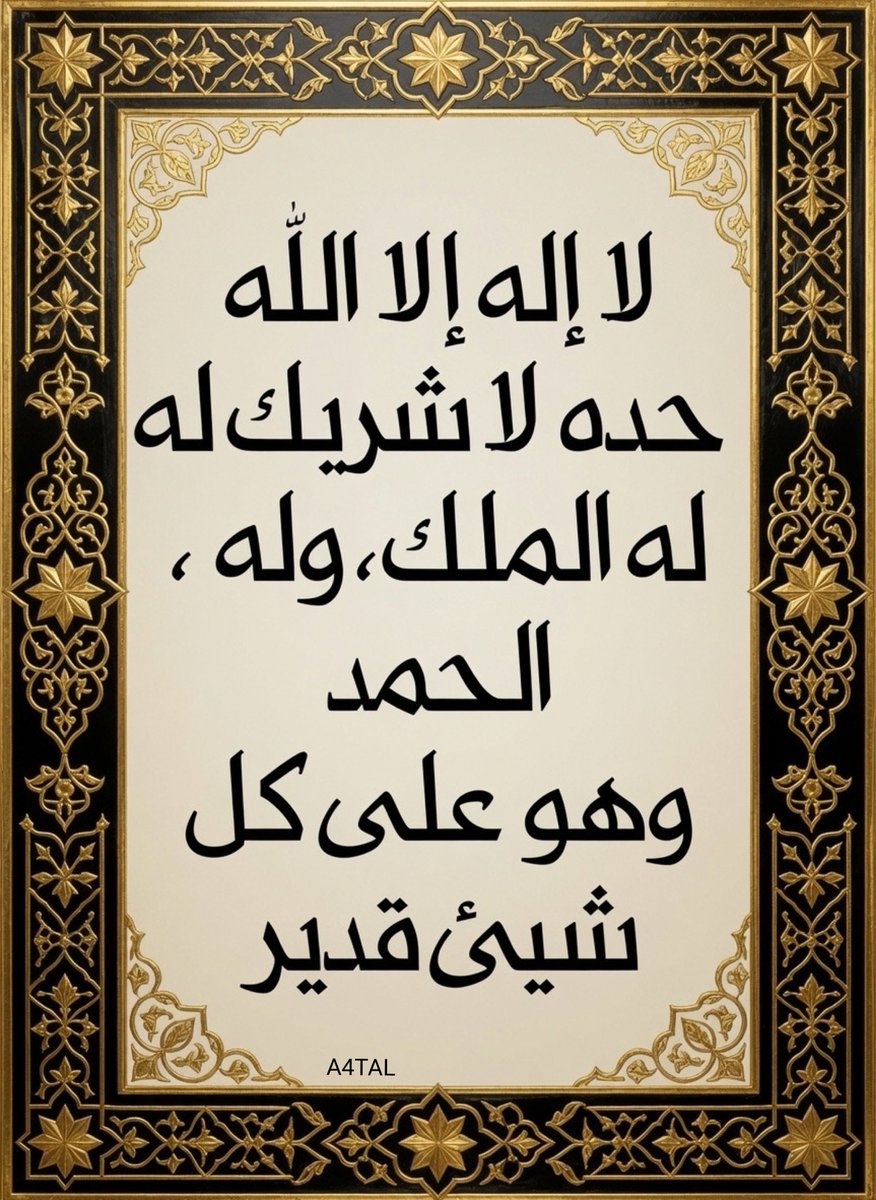 لا إله إلا اللّٰه
حده لا شريك له
له الملك، وله ،
الحمد
وهو على كل
شيئ قدير
A4TAL